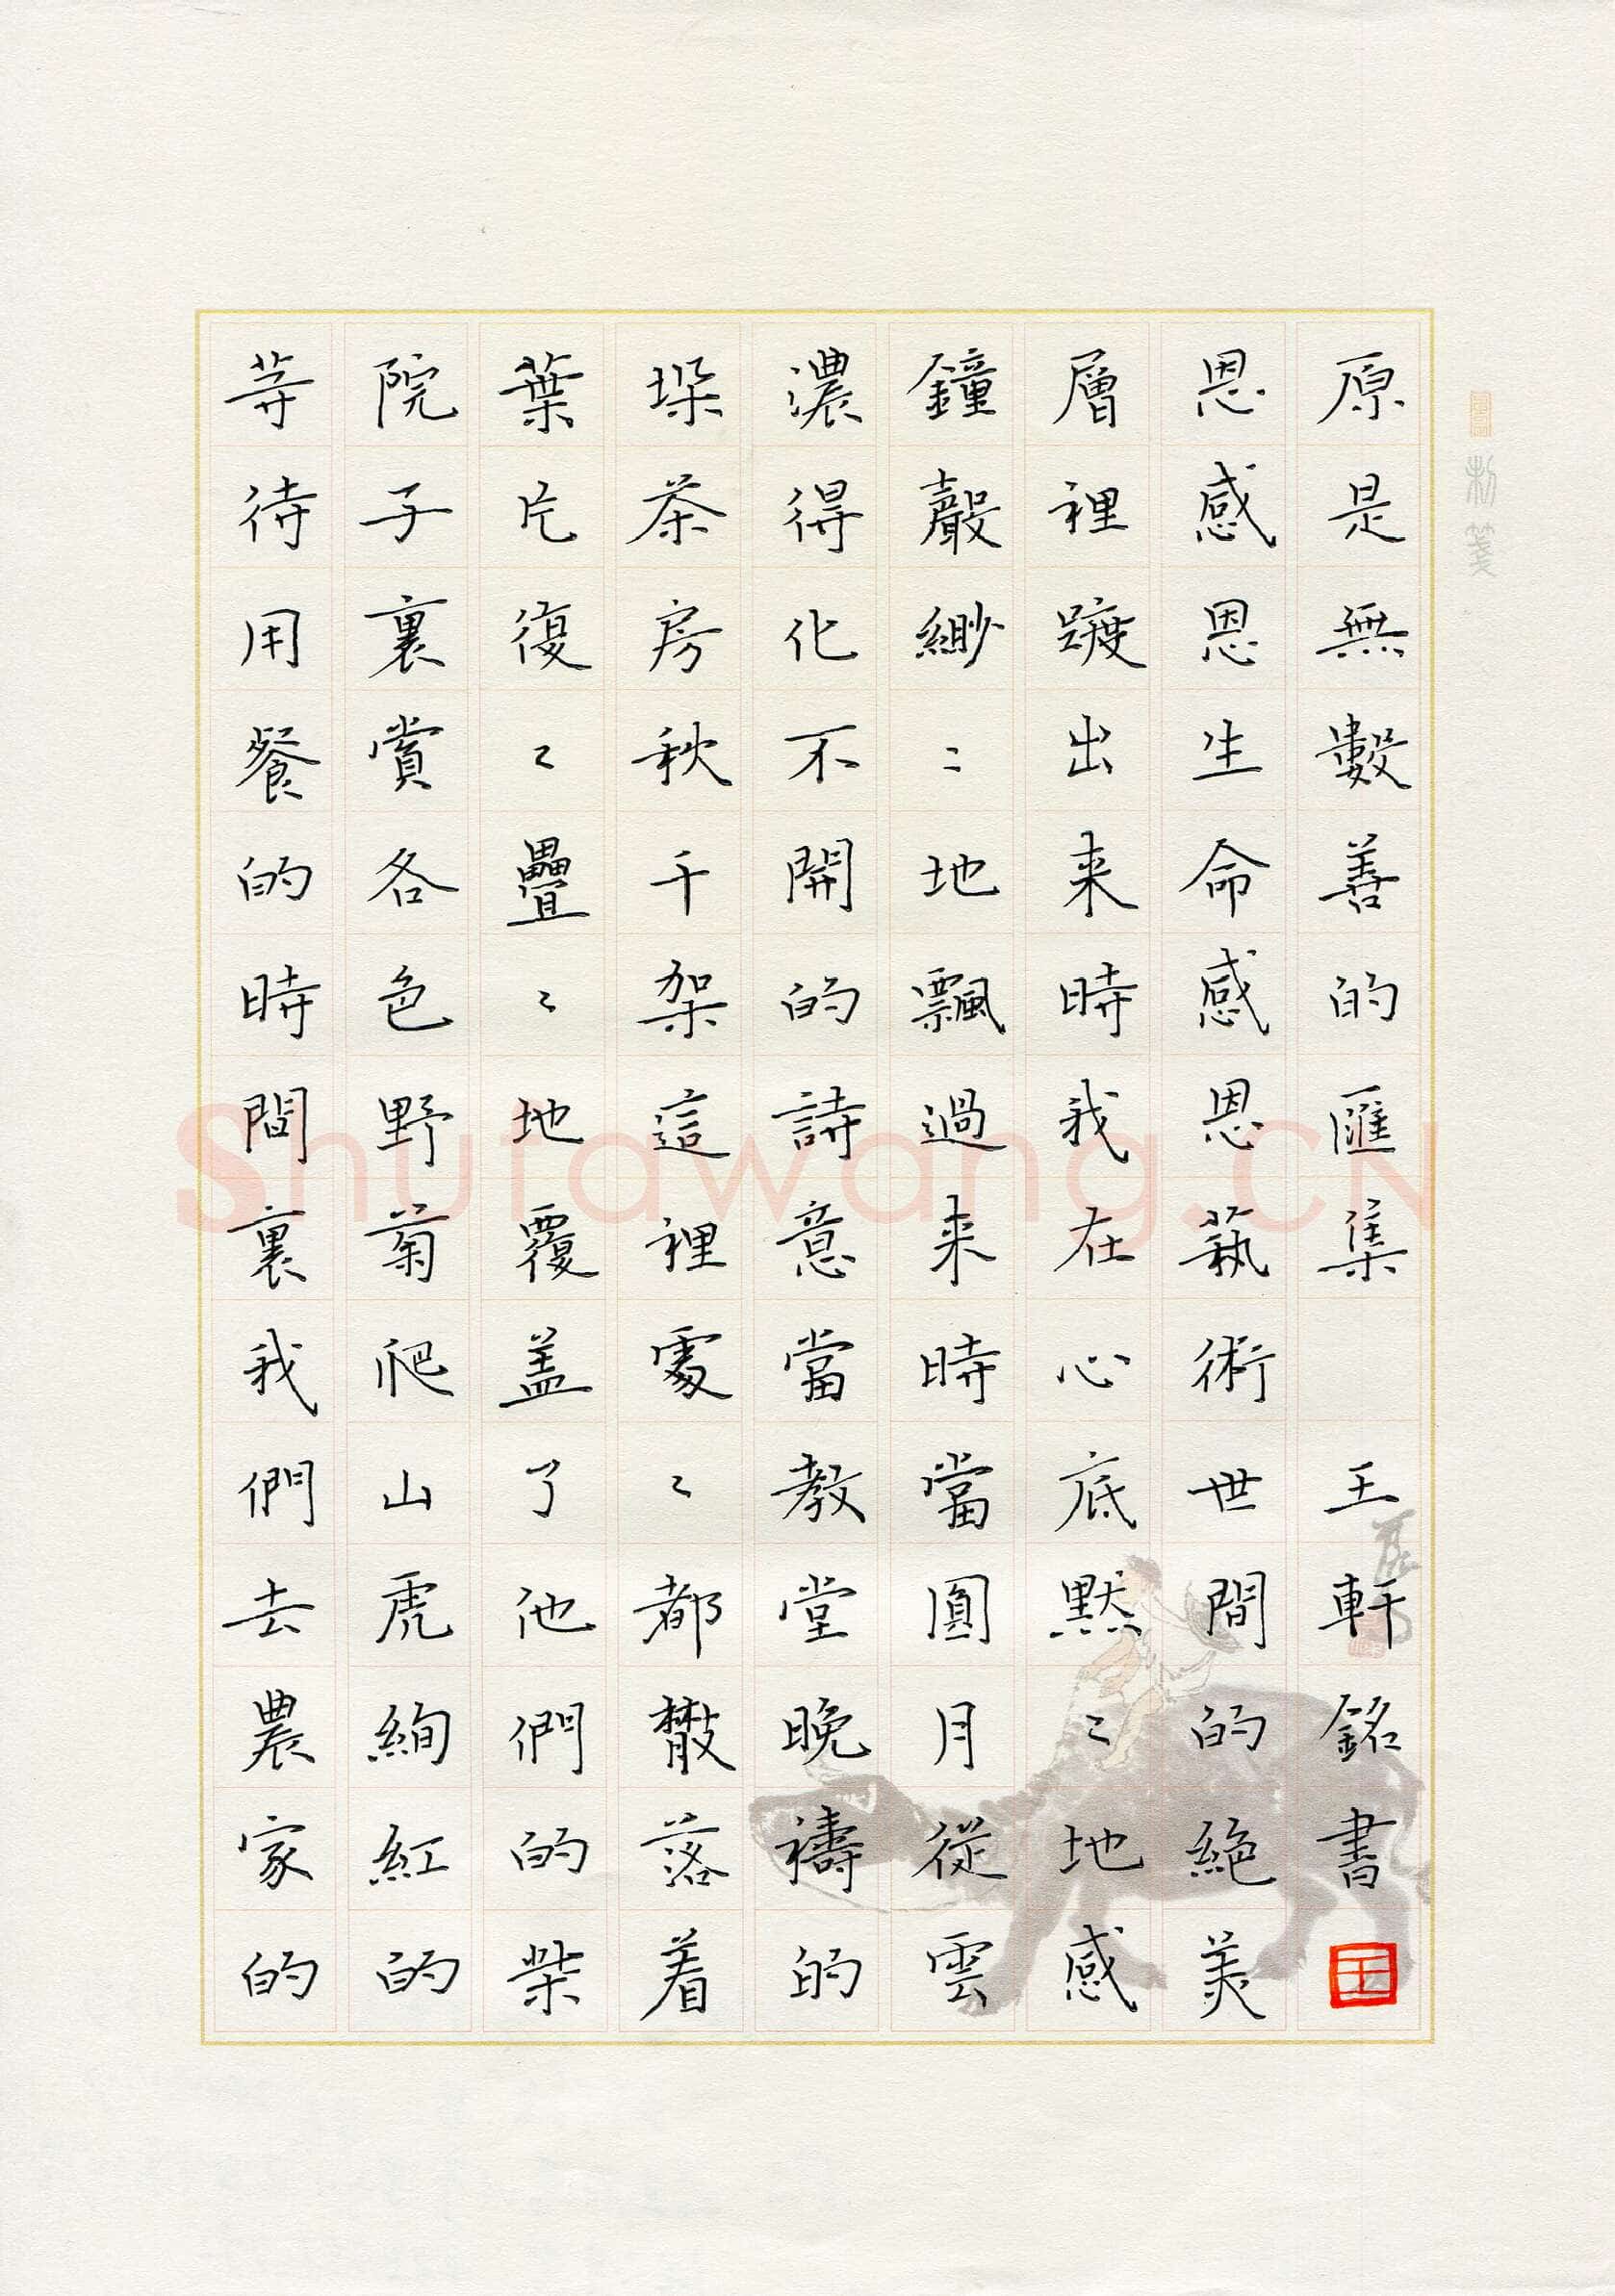 等待用餐的時間裏我們去農家的
院子裏賞各色野菊爬山虎絢紅的
葉片復〻疊〻地覆盖了他們的柴
垛茶房秋千架這裡處〻都散落着
濃得化不開的詩意當教堂晚禱的
鐘聲緲〻地飄過来時當圓月從雲
層裡踱出来時我在心底默〻地感
恩感恩生命感恩藝術世間的絕美
原是無數善的匯集 王軒銘書
王
Shufawang.CN